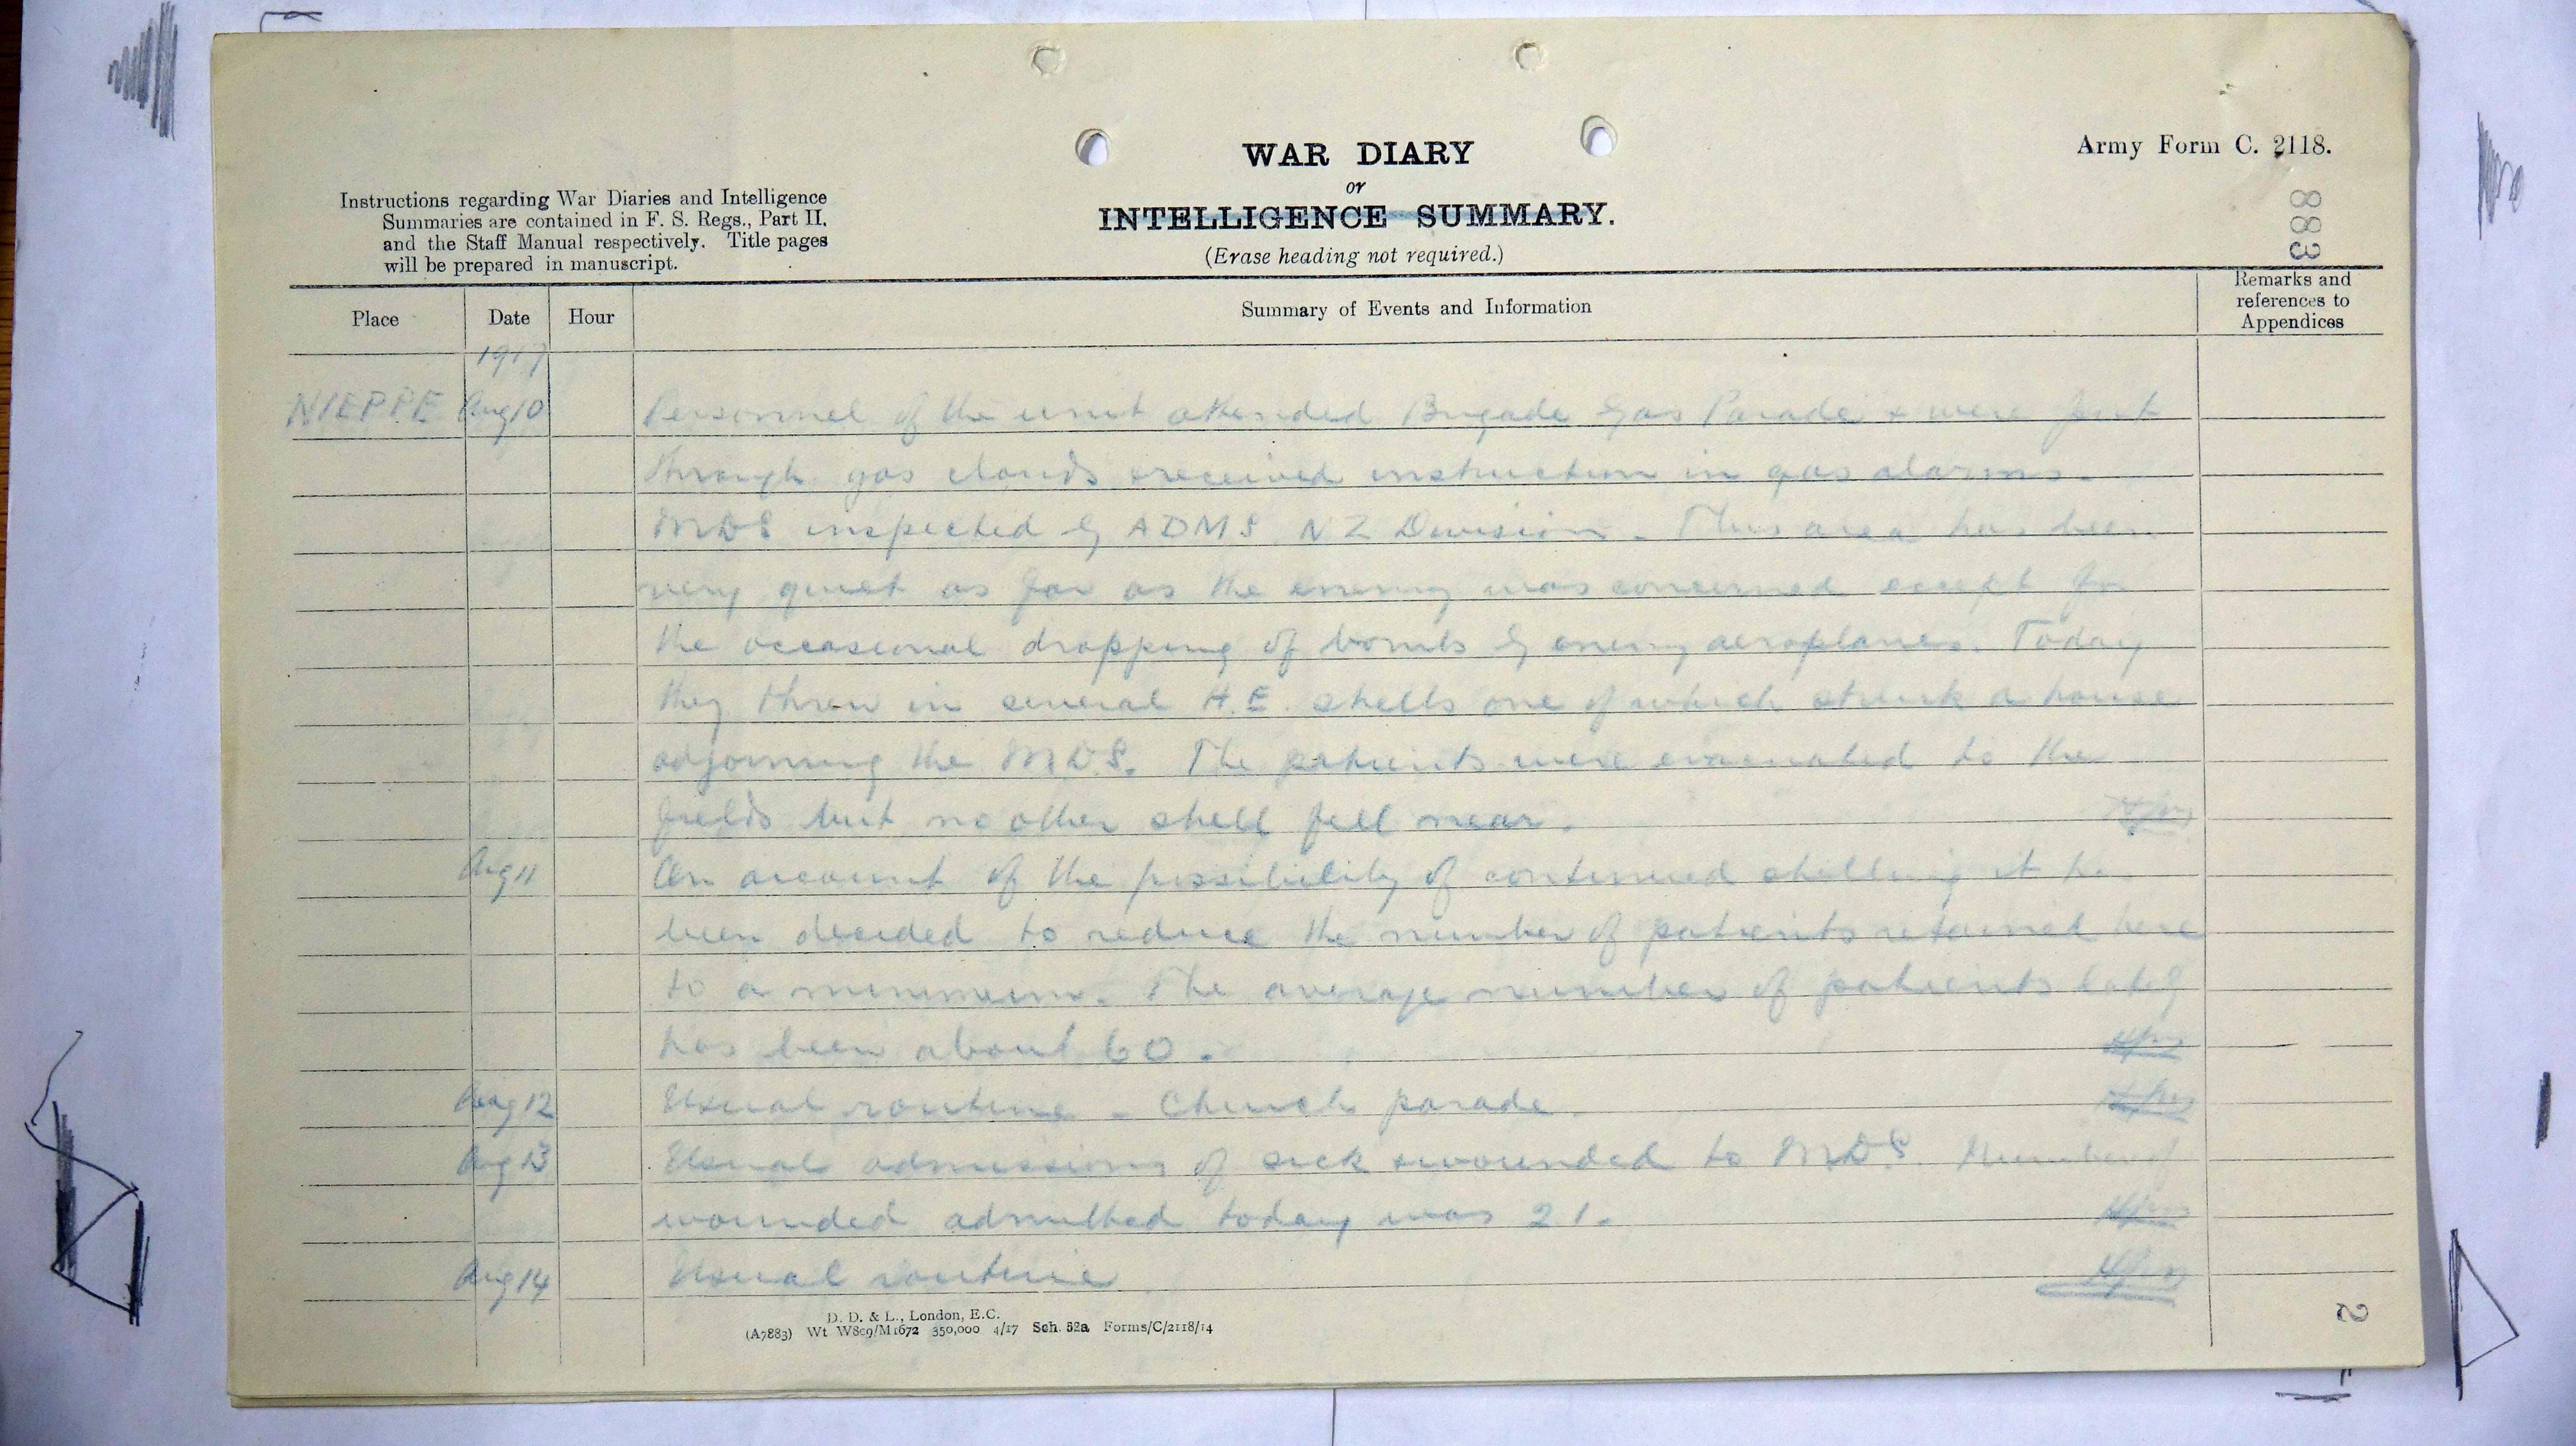 WAR DIARY
or
INTELLIGENCE SUMMARY.
(Erase heading not required.)
Army Form C. 2118.
883
Instructions regarding War Diaries and Intelligence
Summaries are contained in F. S. Regs., Part II,
and the Staff Manual respectively. Title pages
will be prepared in manuscript.
Place Date Hour Summary of Events and Information Remarks and references to Appendices
1917
NIEPPE Aug 10 Personnel of the unit attended Brigade Gas Parade & were put
through gas clouds & received instruction in gas alarms.
MDS inspected by ADMS NZ Division. This area has been
very quiet as far as the enemy was concerned except for
the occasional dropping of bombs by enemy aeroplanes. Today
they threw in several H.E. shells one of which struck a house
adjoining the MDS. The patients were evacuated to the
fields but no other shell fell near.
Aug 11 On account of the possibility of continued shelling it has
been decided to reduce the number of patients retained here
to a minimum. The average number of patients lately
has been about 60.
Aug 12 Usual routine - Church parade.
Aug 13 Usual admissions of sick & wounded to MDS. Number of
wounded admitted today was 21.
Aug 14 Usual routine
D. D. & L., London, E.C.
(A7883) Wt W809/M1672 350,000 4/17 Sch. 52a Forms/C/2118/14
2